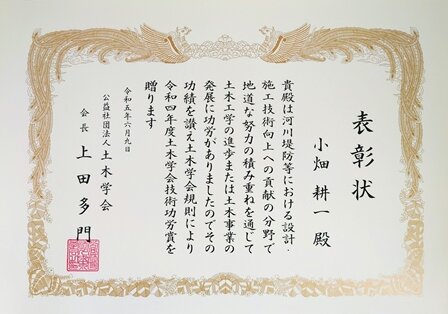 表彰状
小畑耕一殿
貴殿は河川堤防等における設計・
施工技術向上への貢献の分野で
地道な努力の積み重ねを通じて
土木工学の進歩または土木事業の
発展に功労がありましたのでその
功績を讃え土木学会規則により
令和四年度土木学会技術功労賞を
贈ります
令和五年六月九日
公益社団法人土木学会
会長上田多門